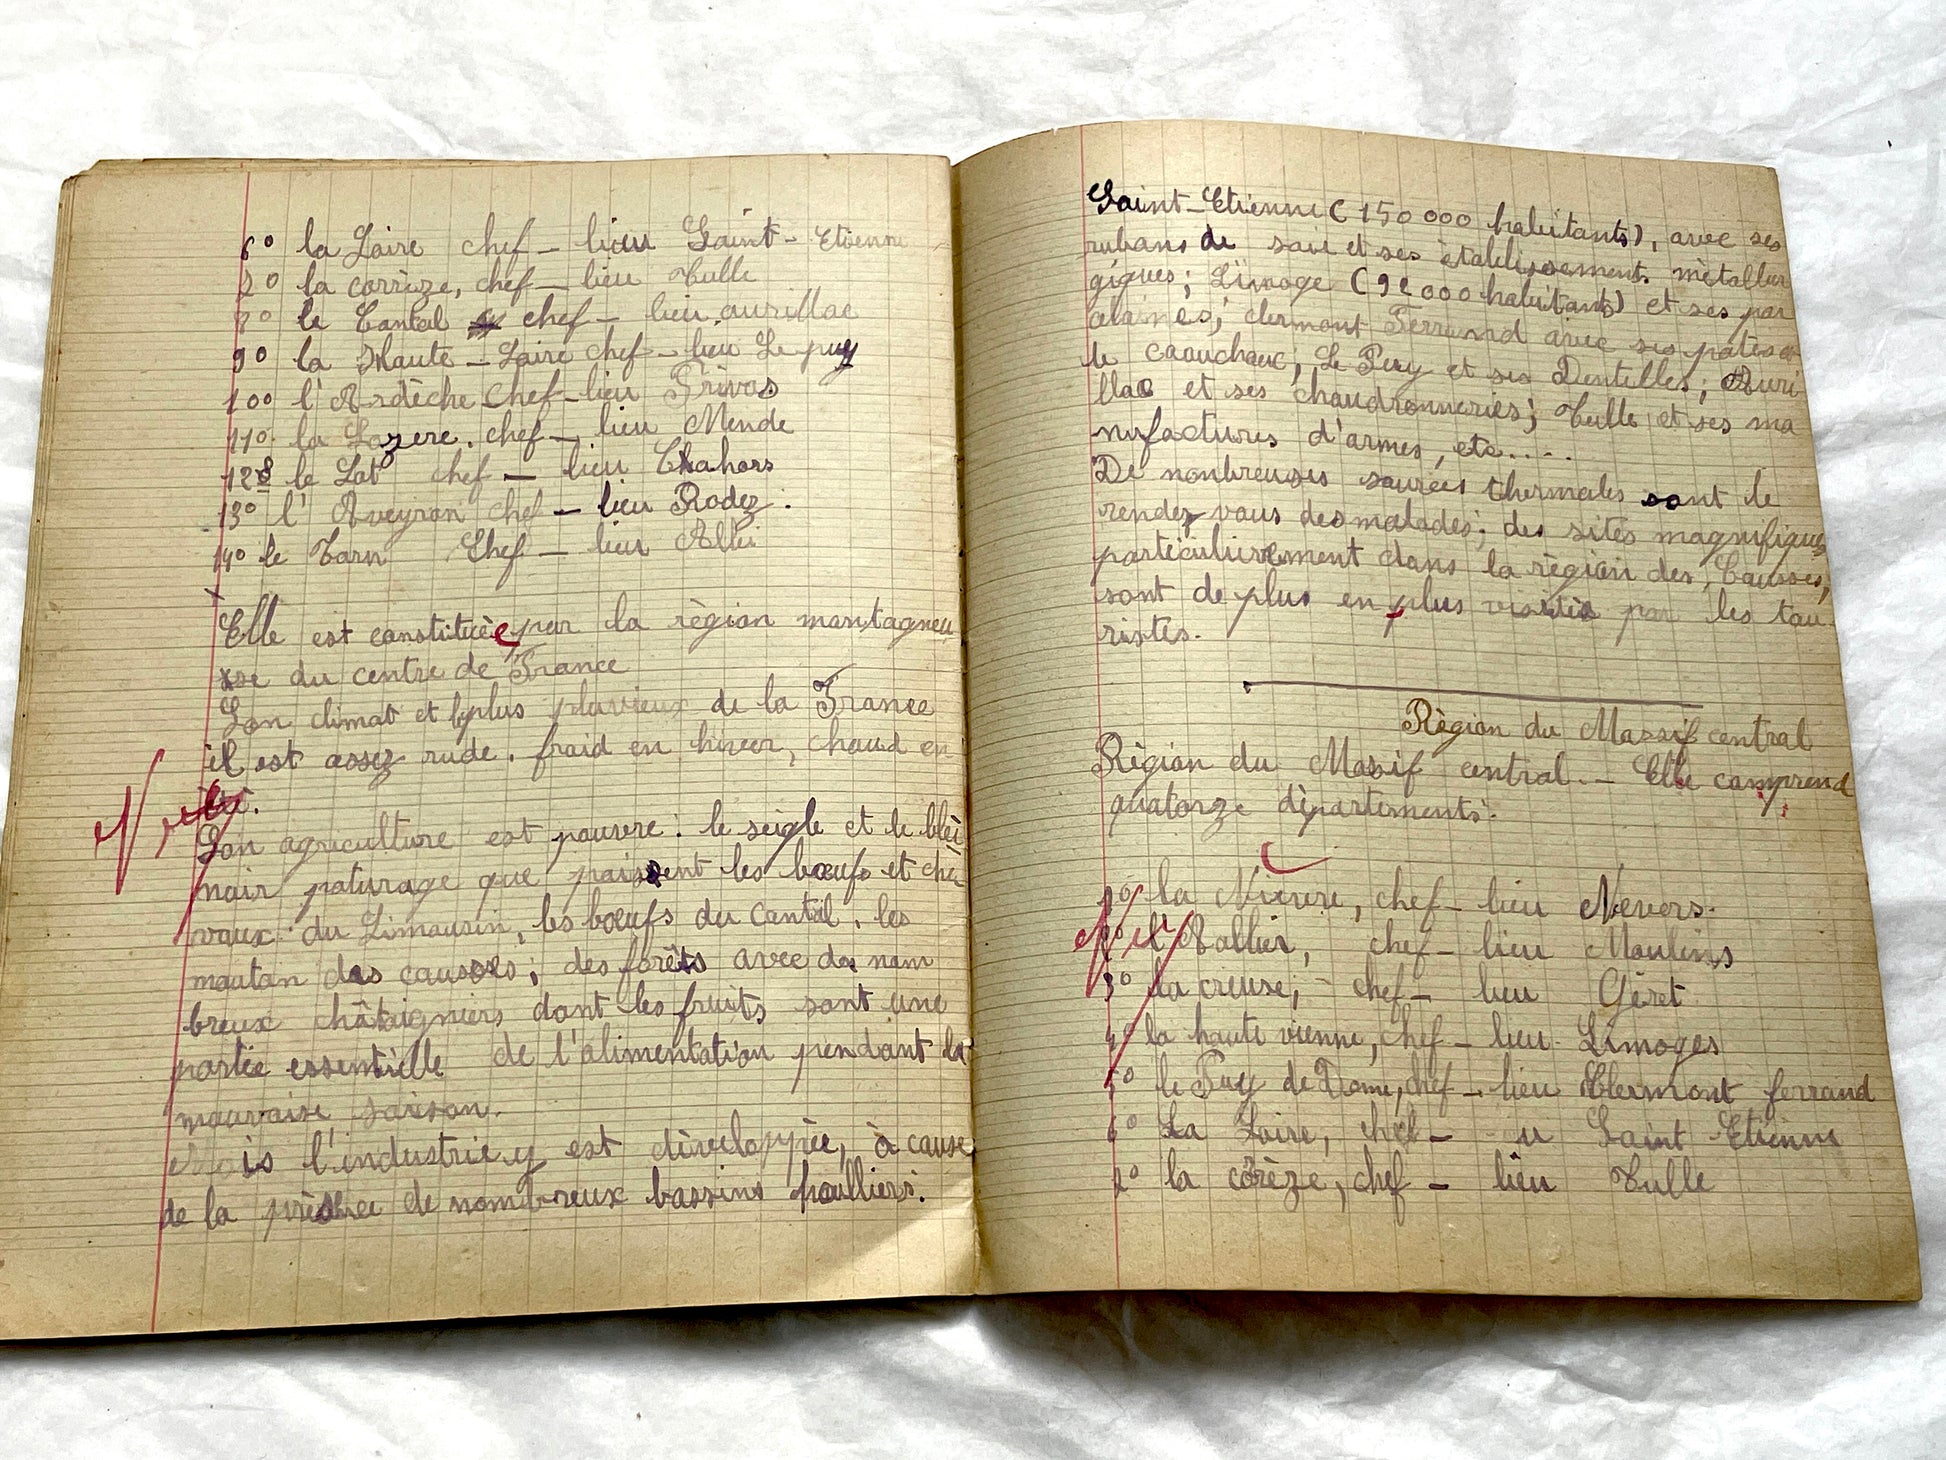 6° la Loire chef - lieu Saint - Etienne
7° la corrèze, chef - lieu Tulle
8° le Cantal chef - lieu aurillac
9° la Haute - Loire chef - lieu Le puy
10° l'Ardèche chef - lieu Privas
11° la Lozere. chef - lieu Mende
12° le Lot chef - lieu Cahors
13° l'Aveyron chef - lieu Rodez.
14° le Tarn Chef - lieu Albi
Elle est constituée par la règion montagneu
se du centre de France
Son climat et plus pluvieux de la France
il est assez rude. froid en hiver, chaud en
été.
Son agriculture est pauvre: le seigle et le blé
noir paturage que paissent les bœufs et che
vaux du Limousin, les bœufs du Cantal, les
moutan des causses; des forêts avec des nom
breux châtaigniers dont les fruits sont une
partie essentielle de l'alimentation pendant la
mauvaise saison.
Mais l'industrie y est dèveloppèe, à cause
de la de nombreux bassins houlliers.
Saint-Etienne (150 000 habitants), avec ses
rubans de soie et ses ètablissement mètallur
giques; Limoge (92 000 habitants) et ses por
clermont Ferrand avec ses pates
le caouchouc; Le Puy et ses Dentelles; Auri
llac et ses chaudronneries; Tulle et ses ma
nufactures d'armes, etc....
De nombreuses sources thermales sont le
rendez vous des malades; des sites magnifiques
particulièrement dans la règion des Causses,
sont de plus en plus par les tou
ristes.
Règion du Massif central
Règion du Massif central. - Elle comprend
quatorze dèpartements.
1° la Nièvre, chef - lieu Nevers.
2° l'Aallier, chef - lieu Moulins
3° la creuse, chef - lieu Gèret
4° la haute vienne, chef - lieu Limoges
5° le Puy de Dome, chef - lieu Clermont ferrand
6° La Loire, chef - Saint Etienne
7° la corèze, chef - lieu Tulle